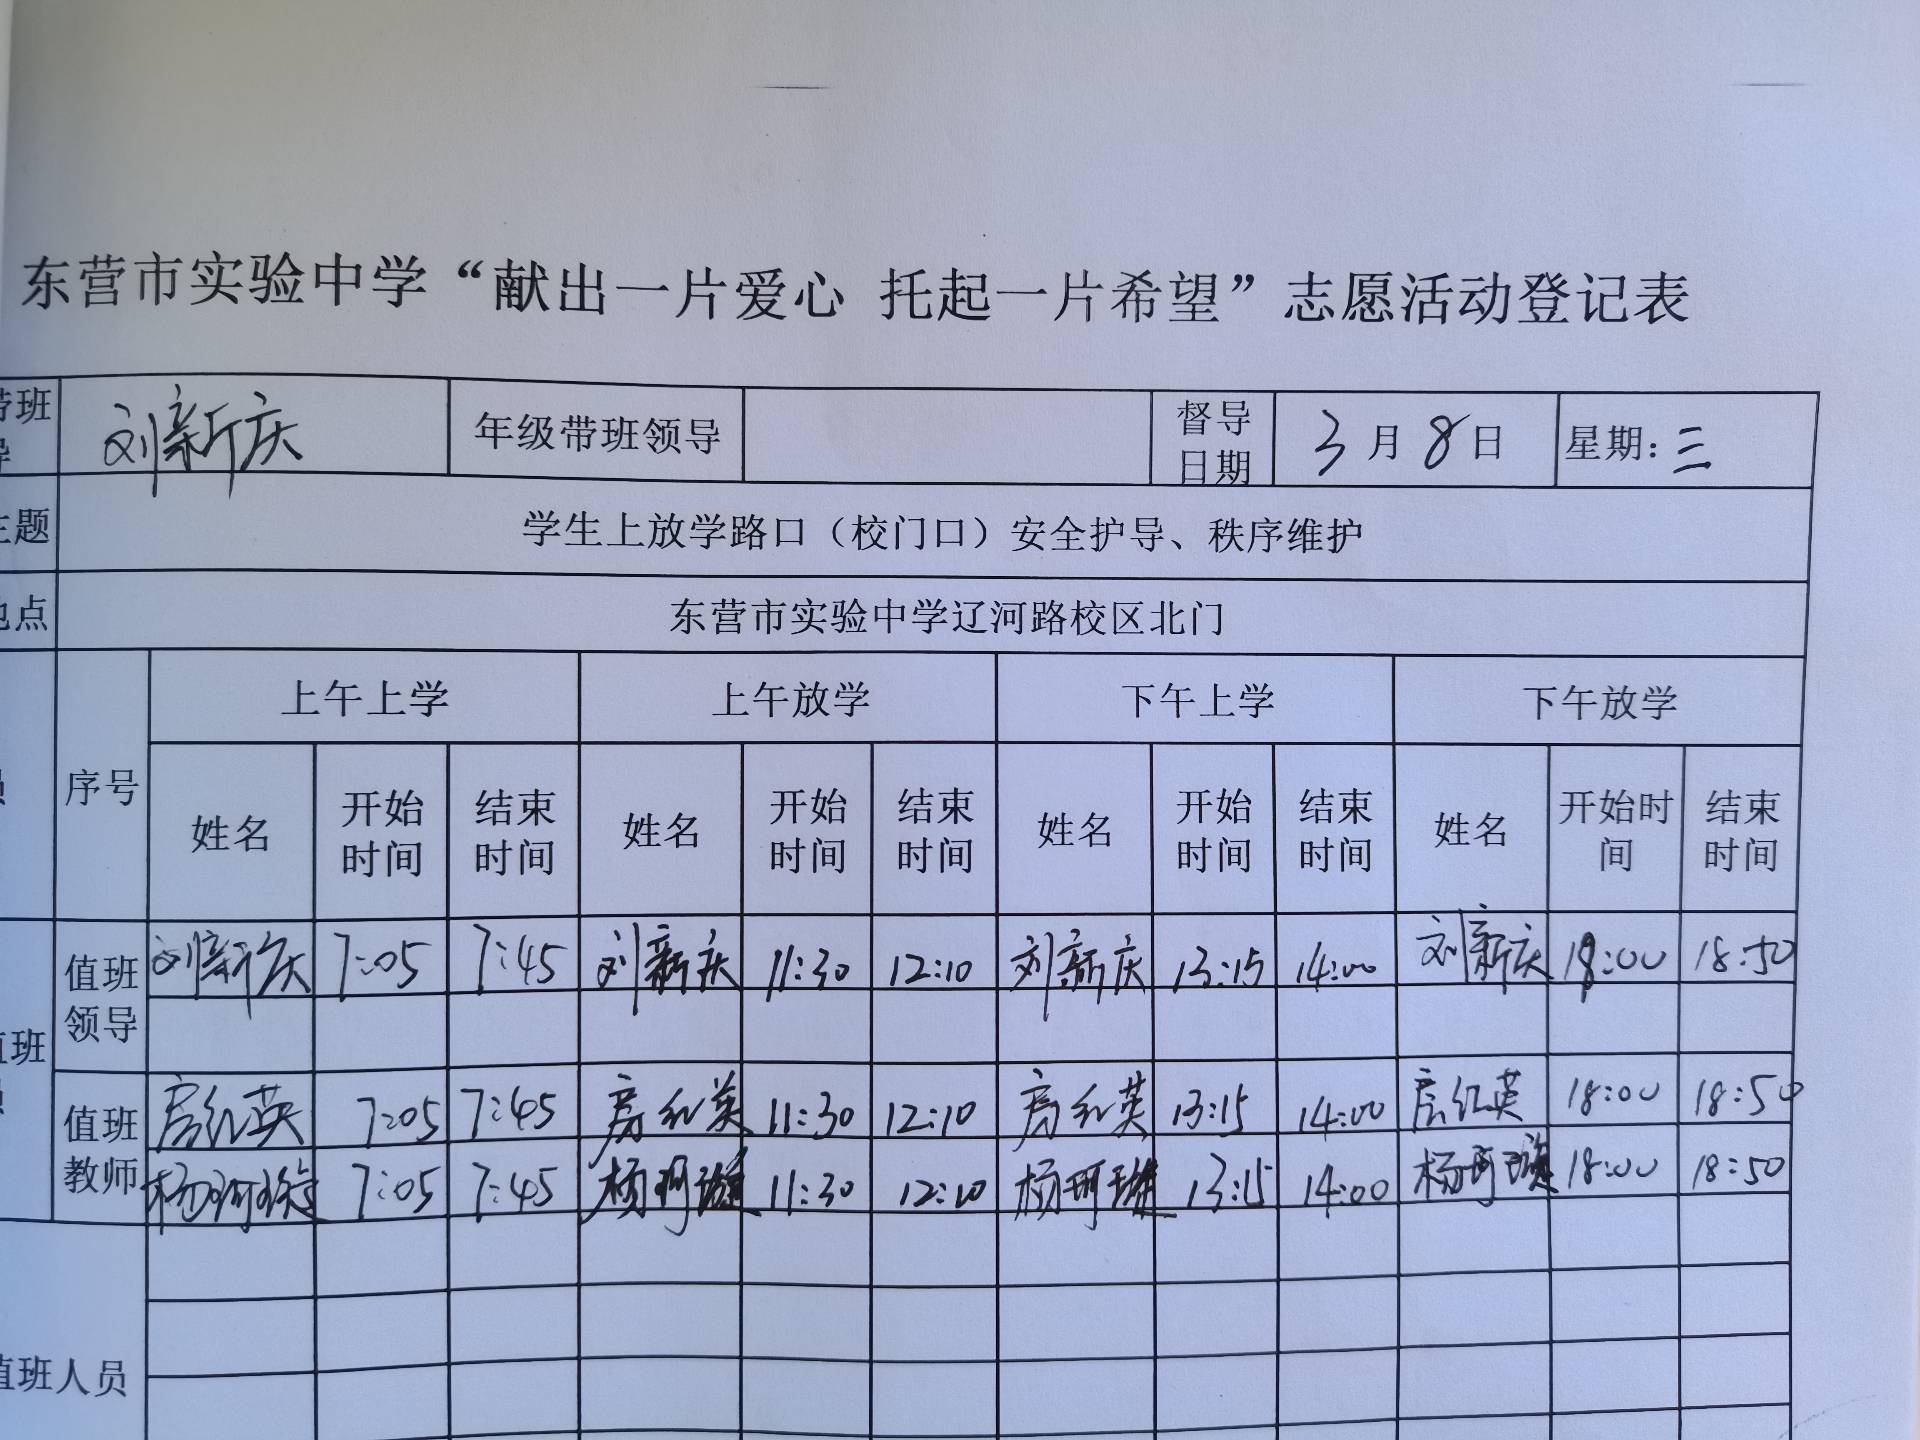 东营市实验中学“献出一片爱心 托起一片希望”志愿活动登记表
带班 刘新庆 年级带班领导 督导 3月8日 星期:三
导 日期
主题 学生上放学路口（校门口）安全护导、秩序维护
地点 东营市实验中学辽河路校区北门
序号 上午上学 上午放学 下午上学 下午放学
姓名 开始时间 结束时间 姓名 开始时间 结束时间 姓名 开始时间 结束时间 姓名 开始时间 结束时间
值班领导 刘新庆 7:05 7:45 刘新庆 11:30 12:10 刘新庆 13:15 14:00 刘新庆 18:00 18:50
值班
值班教师 房红英 7:05 7:45 房红英 11:30 12:10 房红英 13:15 14:00 房红英 18:00 18:50
杨珂璇 7:05 7:45 杨珂璇 11:30 12:10 杨珂璇 13:15 14:00 杨珂璇 18:00 18:50
值班人员